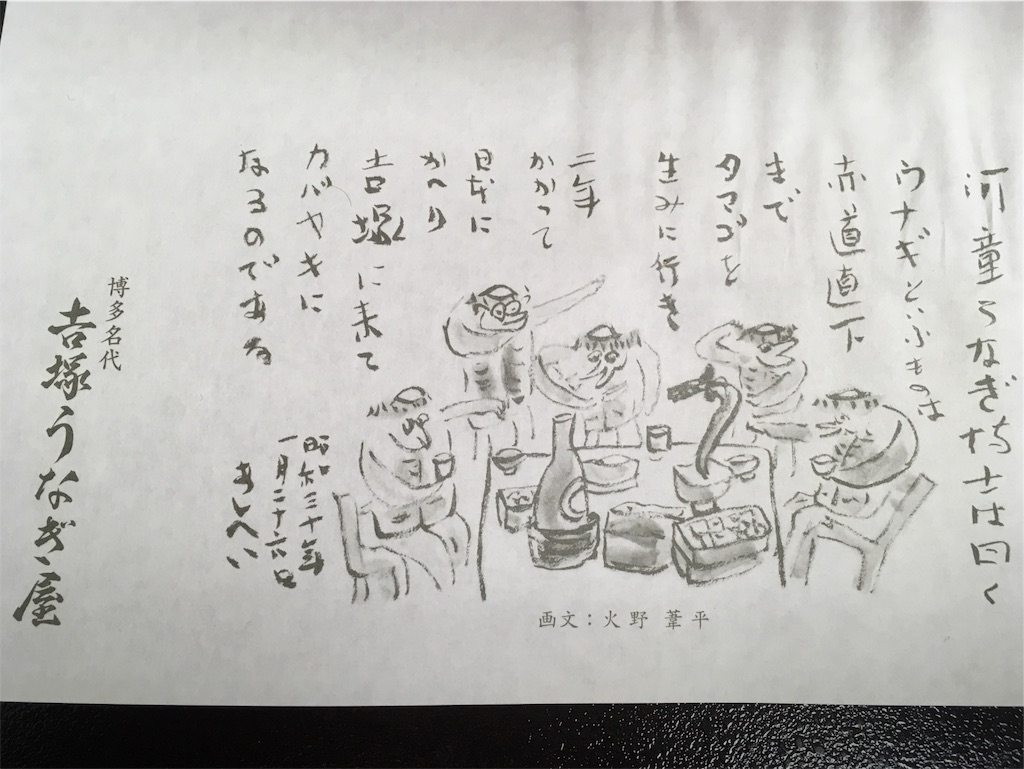 河童うなぎ博士は曰く
ウナギといふものは
赤道直下
まで
タマゴを
生みに行き
二年
かかって
日本に
かへり
吉塚に来て
カバヤキに
なるのである
昭和三十年
一月二十六日
あしへい
画文:火野 葦平
博多名代
吉塚うなぎ屋